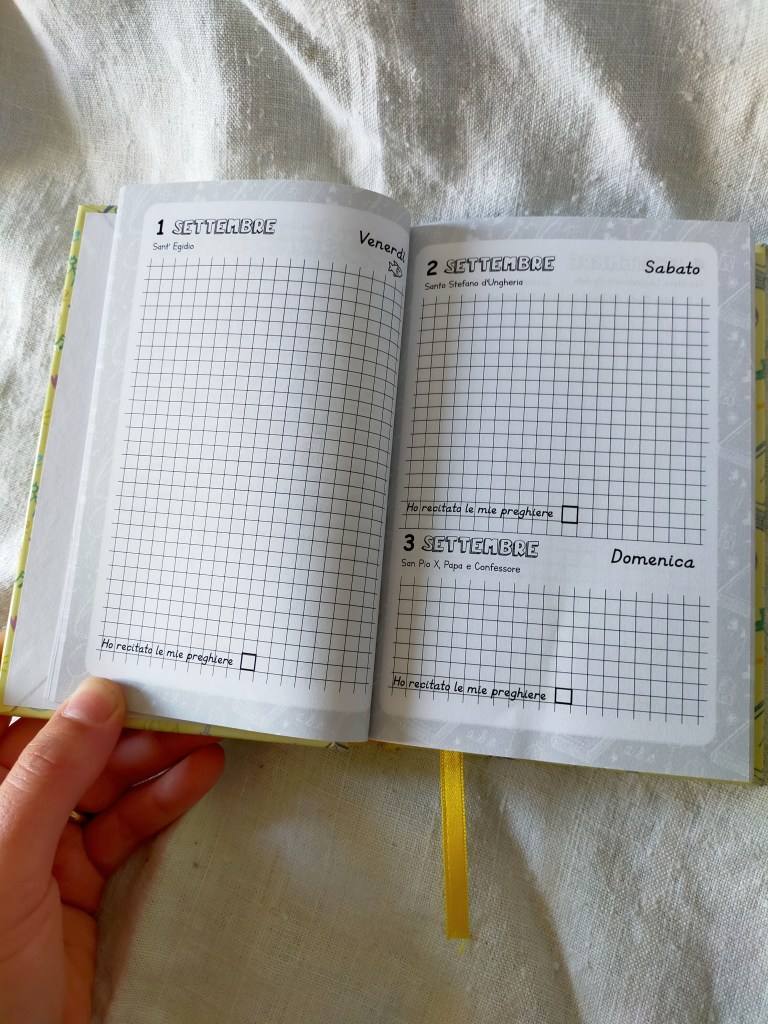 1 SETTEMBRE
Venerdì
Sant' Egidio
Ho recitato le mie preghiere
2 SETTEMBRE
Sabato
Santo Stefano d'Ungheria
Ho recitato le mie preghiere
3 SETTEMBRE
Domenica
San Pio X, Papa e Confessore
Ho recitato le mie preghiere